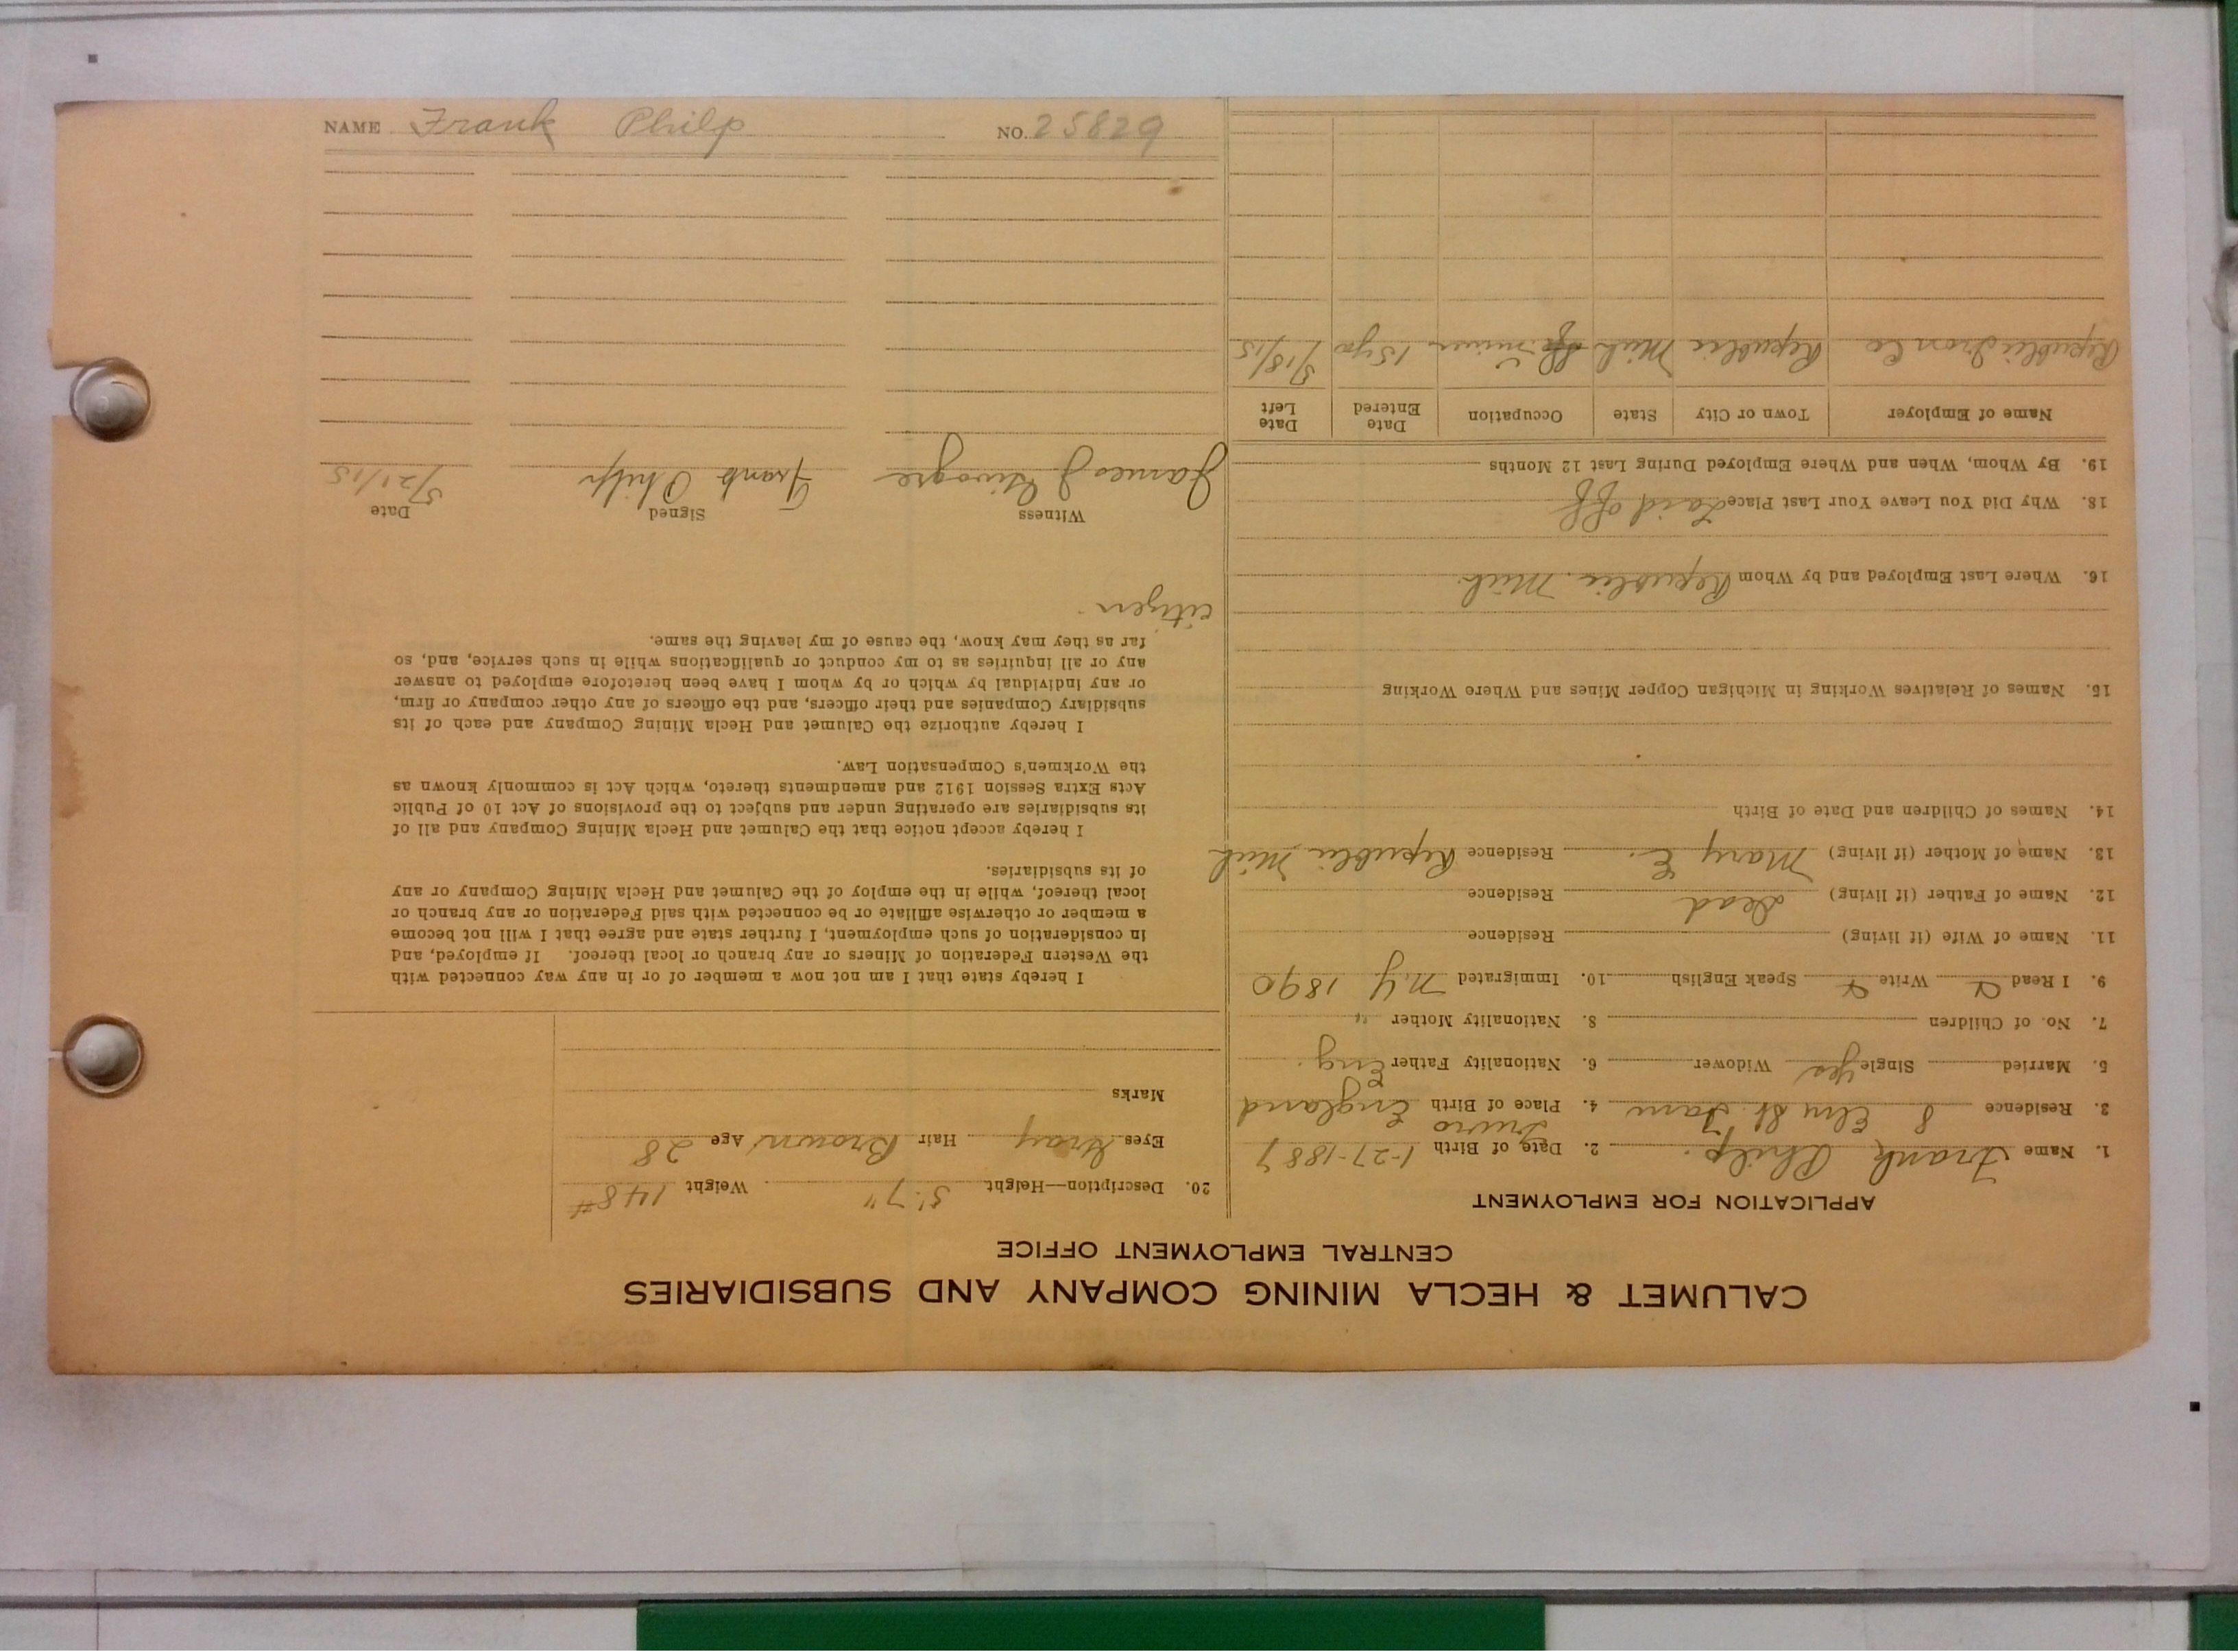 CALUMET & HECLA MINING COMPANY AND SUBSIDIARIES
CENTRAL EMPLOYMENT OFFICE
APPLICATION FOR EMPLOYMENT
1. Name Frank Philp. 2. Date of Birth 1-27-1887
Truro
3. Residence 8 Elm St. 4. Place of Birth England
5. Married Single Yes Widower 6. Nationality Father Eng.
7. No. of Children 8. Nationality Mother "
9. I Read Write Speak English 10. Immigrated N.Y 1890
11. Name of Wife (if living) Residence
12. Name of Father (if living) Dead Residence
13. Name of Mother (if living) Mary E. Residence Republic Mich
14. Names of Children and Date of Birth
15. Names of Relatives Working in Michigan Copper Mines and Where Working
16. Where Last Employed and by Whom Republic. Mich.
18. Why Did You Leave Your Last Place Laid off
19. By Whom, When and Where Employed During Last 12 Months
Name of Employer Town or City State Occupation Date Entered Date Left
Republic Iron Co Republic Mich miner 15 yrs 5/18/15
20. Description—Height 5' 7" Weight 148#
Eyes Gray Hair Brown Age 28
Marks
I hereby state that I am not now a member of or in any way connected with
the Western Federation of Miners or any branch or local thereof. If employed, and
in consideration of such employment, I further state and agree that I will not become
a member or otherwise affiliate or be connected with said Federation or any branch or
local thereof, while in the employ of the Calumet and Hecla Mining Company or any
of its subsidiaries.
I hereby accept notice that the Calumet and Hecla Mining Company and all of
its subsidiaries are operating under and subject to the provisions of Act 10 of Public
Acts Extra Session 1912 and amendments thereto, which Act is commonly known as
the Workmen's Compensation Law.
I hereby authorize the Calumet and Hecla Mining Company and each of its
subsidiary Companies and their officers, and the officers of any other company or firm,
or any individual by which or by whom I have been heretofore employed to answer
any or all inquiries as to my conduct or qualifications while in such service, and, so
far as they may know, the cause of my leaving the same.
citizen
Witness Signed Date
James J Frank Philp 5/21/15
NAME Frank Philp NO. 25829